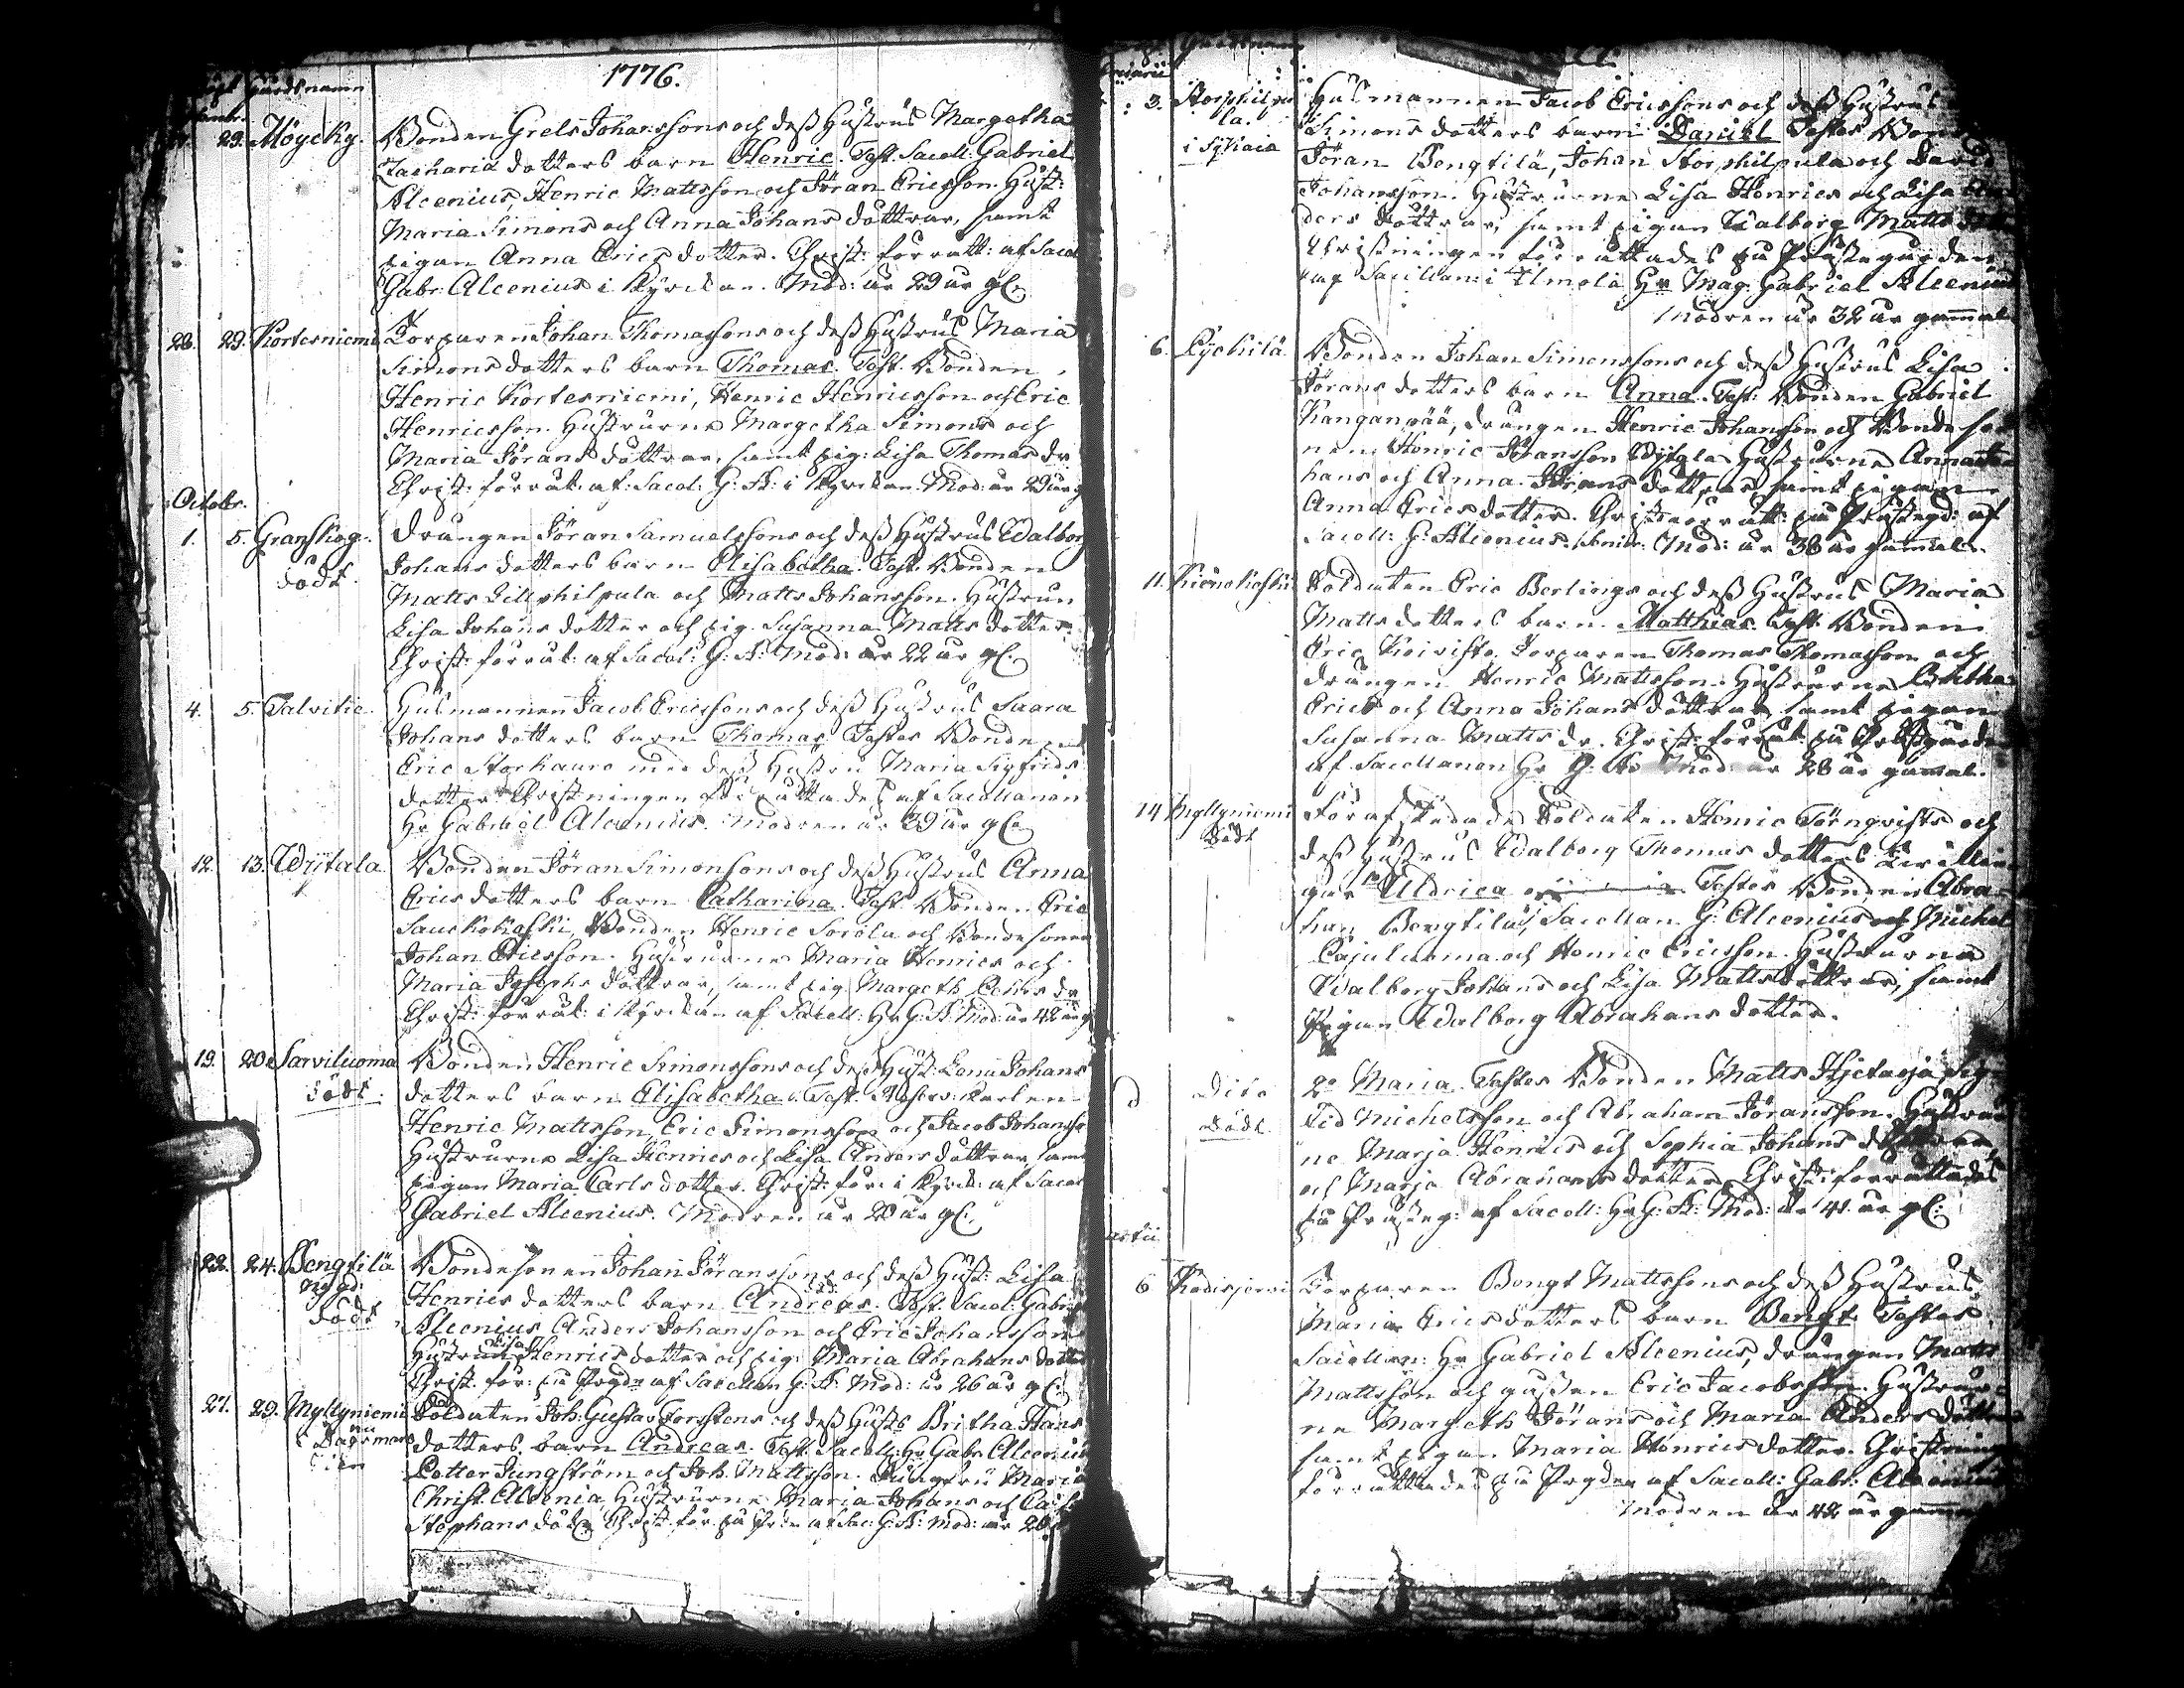 1776.
Gårds namn
29. Höycky. Bonden Grels Johanssons och dess Hustrus Margetha
Zacharia dotters barn Henric. Test. Sacell: Gabriel
Alcenius, Henric Mattsson och Jöran Ericsson. Hust:
Maria Simons och Anna Johans döttrar, samt
pigan Anna Erics dotter. Christ: förrätt: af Sacel
Gabr: Alcenius i Kyrckan. Mod: är 29 år gl:
28. 29. Kortesniemi Torparen Johan Thomassons och dess Hustrus Maria
Simons dotters barn Thomas. Test. Bonden
Henric Kortesniemi, Henric Henricsson och Eric
Henricsson. Hustrurne Margetha Simons och
Maria Jörans döttrar, samt pig: Lisa Thomas dr
Christ: förrät: af: Sacel: G: A: i Kyrckan. Mod: är 29 år g
Octobr.
1. 5. Granskog. Drängen Jöran Samuelssons och dess Hustrus Walborg
död. Johans dotters barn Elisabetha. Test. Bonden
Matts Lillphilpula och Matts Johansson. Hustrun
Lisa Johans dotter och pig. Susanna Matts dotter.
Christ: förrät: af Sacel: G: A: Mod: är 22 år gl:
4. 5. Talvitie. Husmannen Jacob Ericssons och dess Hustrus Saara
Johans dotters barn Thomas. Testes Bonden
Eric Storkauro med dess Hustru Maria Sigfrids
dotter. Christningen förrättades af Sacellanen
Hr Gabriel Alcenius. Modren är 39 år gl:
12. 13. Wijtala Bonden Jöran Simonssons och dess Hustrus Anna
Erics dotters barn Catharina. Test. Bonden Eric
Sauckokoski, Bonden Henric Sorola och Bondesonen
Johan Ericsson. Hustrurne Maria Henrics och
Maria Josephs döttrar, samt pig. Margeth Petters dr
Christ: förrät: i Kyrckan af Sacell: Hr G: A: Mod: är 42 år g
19. 20. Sarviluoma Bonden Henric Simonssons och dess Hust: Lena Johans
död. dotters barn Elisabetha. Test.
Henric Mattsson, Eric Simonsson och Jacob Johansso
Hustrurne Lisa Henrics och Lisa Anders döttrar, samt
pigan Maria Carls dotter. Christ: för: i Kyrck: af Sacel
Gabriel Alcenius. Modren är 20 år gl:
22. 24. Bengtilä Bondesonen Johan Jöranssons och dess Hust: Lisa
nygd: Henrics dotters barn Andreas. Test. Sacel: Gabri
död Alcenius Anders Johansson och Eric Johansson
Hustrun Lisa Henrics dotter och pig: Maria Abrahans dotter
Christ. för: på Prgdn af Sacellan G: A: Mod: är 26 år gl:
27. 29. Myllyniemi Soldaten Joh. Gustav Forsstens och dess Husts Britha Hans
nu Dagsmark dotters barn Andreas. Test. Sacell: Hr Gabr: Alcenius
Petter Jungström och Joh. Mattsson. Jungfru Maria
Christ. Alcenia, Hustrurne Maria Johans och Caisa
Stephans dött. Christ. för på Prgdn af Sac: G: A: Mod: är 20
3. Storphilpu Husmannen Jacob Ericssons och dess Hustrus
la. Simons dotters barn Daniel Testes Bond
Jöran Bengtilä, Johan Storphilpula och David
Johansson. Hustrurne Lisa Henrics och Lisa An
ders döttrar, samt pigan Walborg Matts dott
Christningen förrättades på Prästegården
af Sacellan: i Ilmola Hr Mag. Gabriel Alcenius
Modren är 32 år gammal
6. Pyckilä. Bonden Johan Simonssons och dess Hustrus Lisa
Jörans dotters barn Anna. Test: Bonden Gabriel
Kanganpää, drängen Henric Johansson och Bonde so
nen Henric Jöransson Wijtala Hustrurne Anna Jo
hans och Anna Jörans döttrar, samt pigan
Anna Erics dotter. Christ: förrätt: på Prästegd: af
Sacell: G: Alcenius. Mod: är 38 år gammal.
11. Kiönokoski Soldaten Eric Berlings och dess Hustrus Maria
Matts dotters barn Matthias. Test. Bonden
Eric Koivisto Torparen Thomas Thomasson och
drängen Henric Mattsson. Hustrurne Britha
Erics och Anna Johans döttrar samt pigan
Susanna Matts dr. Christ: förrät: på Prästgårdn
af Sacellanen Hr G: Al: Mod: är 28 år gamal.
14 Myllyniemi För afskedade Soldaten Henric Törnqvists och
död dess Hustrus Walborg Thomas dotters Tvillin
gar 1o Uldrica Testes Bonden Abra
ham Bengtilä, Sacellan. G: Alcenius och Michel
Cajaluoma och Henric Ericsson. Hustrurne
Walborg Johans och Lisa Matts döttrar, samt
Pigan Walborg Abrahans dotter.
Dito 2o Maria Testes Bonden Matts Hjetaoja, Sig
död frid Michelsson och Abraham Jöransson. Hustrur
ne Marja Henrics och Sophia Johans döttrar,
och Marja Abrahans dotter Christ: förrättades
på Prästeg: af Sacell: Hr G: A: Mod: är 41 år gl:
6 Kodisjervi Torparen Bengt Mattssons och dess Hustrus
Maria Erics dotters barn Bengt Testes
Sacellan: Hr Gabriel Alcenius, drängen Matts
Mattsson och gossen Eric Jacobsson. Hustrur
ne Margeth Jörans och Maria Anders döttrar
samt pigan Maria Henrics dotter. Christning
förrättades på Prgden af Sacell: Gabr: Alcenius
Modren är 42 år gamma